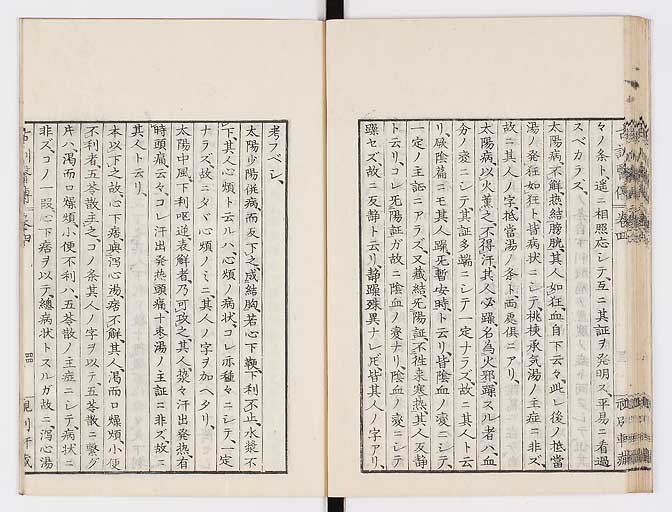 々ノ条ト、遙ニ相照応シテ、互ニ其証ヲ発明ス、平易ニ看過
スベカラズ、
太陽病、不解、熱結膀胱、其人如狂、血自下云々、此レ後ノ抵當
湯ノ発狂如狂ト、皆病状ニシテ、桃核承気湯ノ主症ニ非ズ、
故ニ其人ノ字、抵當湯ノ条ト両處俱ニアリ、
太陽病、以火薫之、不得汗、其人必躁、名為火邪、躁スル者ハ、血
分ノ変ニシテ、其証多端ニシテ一定ナラズ、故ニ其人ト云
リ、厥陰篇ニモ其人躁無暫安時、ト云リ、皆陰血ノ変ニシテ、
一定ノ主証ニアラズ、又蔵結無陽証、不往来寒熱、其人反静
ト云リ、コレ無陽証ガ故ニ陰血ノ変ナリ、陰血ノ変ニシテ
躁セズ、故ニ反静ト云リ、静躁殊異ナレ𪜈、皆其人ノ字アリ、
考フベシ、
太陽少陽併病、而反下之、成結胸、若心下鞕、下利不止、水漿不
下、其人心煩ト云ルハ、心煩ノ病状、コレ亦種々ニシテ、一定
ナラズ、故ニタヾ心煩ノミニ、其人ノ字ヲ加ヘタリ、
太陽中風、下利嘔逆、表解者、乃可攻之、其人漐々汗出、発熱有
時、頭痛云々、コレ汗出発熱頭痛、十棗湯ノ主証ニ非ズ、故ニ
其人ト云リ、
本以下之故、心下痞、與瀉心湯、痞不解、其人渇而口燥煩、小便
不利者、五苓散主之、コノ条其人ノ字ヲ以テ五苓散ニ繋グ
𪜈、渇而口燥煩、小便不利ハ、五苓散ノ主症ニシテ、病状ニ
非ズ、コノ一段心下痞ヲ以テ、總病状トスルガ故ニ、瀉心湯
四